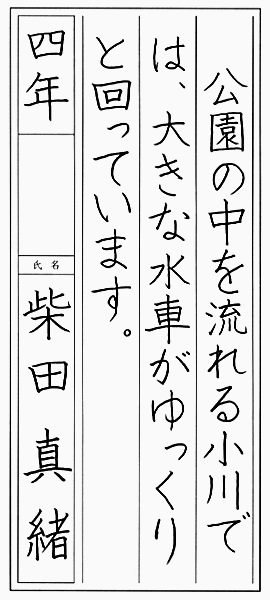 公園の中を流れる小川で
は、大きな水車がゆっくり
と回っています。
四年
氏名
柴田真緒